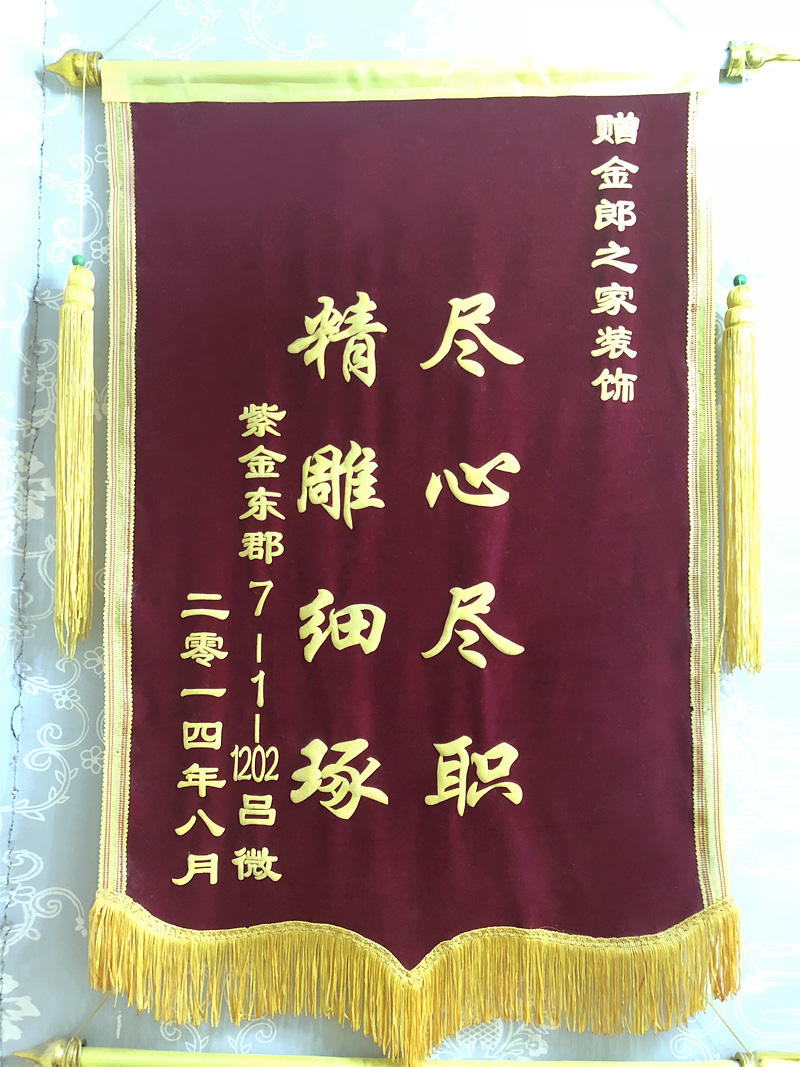 赠金郎之家装饰
尽心尽职
精雕细琢
紫金东郡7-1-1202吕微
二零一四年八月